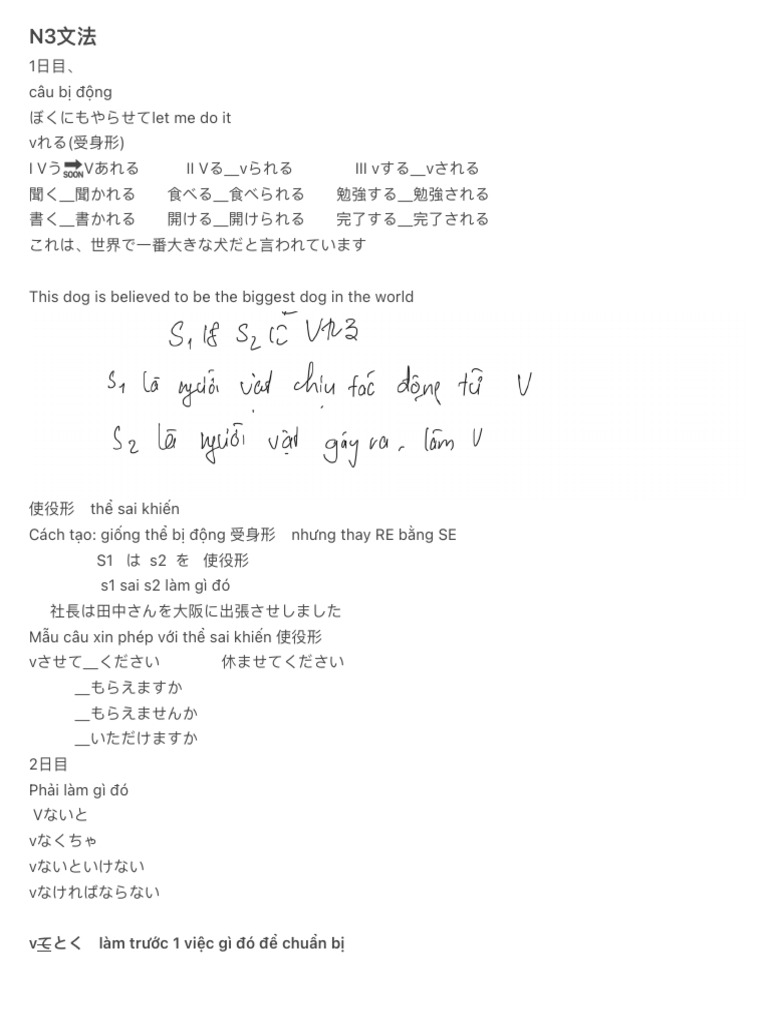 N3文法
1日目、
câu bị động
ぼくにもやらせてlet me do it
vれる(受身形)
I Vう🔜Vあれる II Vる__vられる III vする__vされる
聞く__聞かれる 食べる__食べられる 勉強する__勉強される
書く__書かれる 開ける__開けられる 完了する__完了される
これは、世界で一番大きな犬だと言われています
This dog is believed to be the biggest dog in the world
S1 は S2 に Vれる
S1 là người vật chịu tác động từ V
S2 là người vật gây ra, làm V
使役形 thể sai khiến
Cách tạo: giống thể bị động 受身形 nhưng thay RE bằng SE
S1 は s2 を 使役形
s1 sai s2 làm gì đó
社長は田中さんを大阪に出張させしました
Mẫu câu xin phép với thể sai khiến 使役形
vさせて__ください 休ませてください
__もらえますか
__もらえませんか
__いただけますか
2日目
Phải làm gì đó
Vないと
vなくちゃ
vないといけない
vなければならない
vてとく làm trước 1 việc gì đó để chuẩn bị